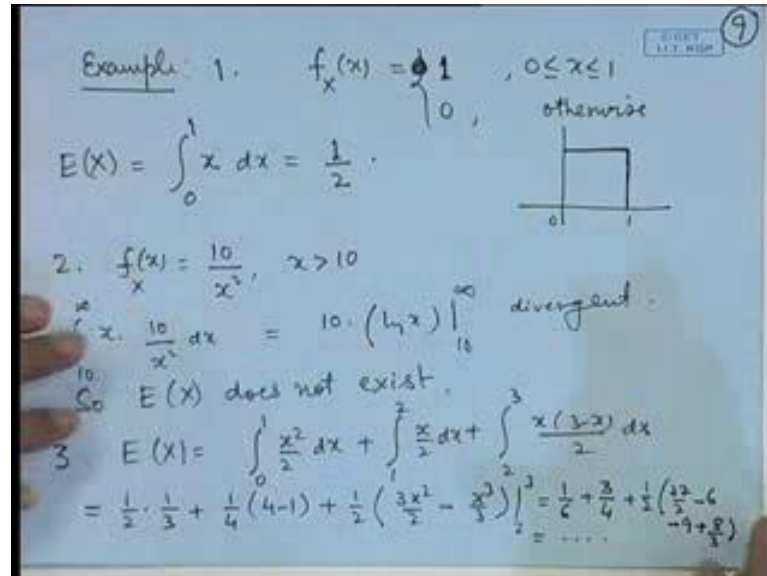 9
C-CET
I.I.T. KGP
Example: 1. f_X(x) = { 1 , 0 ≤ x ≤ 1
0 , otherwise
E(X) = ∫_0^1 x dx = 1/2 .
0 1
2. f_X(x) = 10/x², x > 10
∫_10^∞ x. 10/x² dx = 10. (ln x) |_10^∞ divergent.
So E(X) does not exist.
3 E(X) = ∫_0^1 x²/2 dx + ∫_1^2 x/2 dx + ∫_2^3 x(3-x)/2 dx
= 1/2 . 1/3 + 1/4 (4-1) + 1/2 (3x²/2 - x³/3) |_2^3 = 1/6 + 3/4 + 1/2 (27/2 - 6
- 9 + 8/3)
= ....